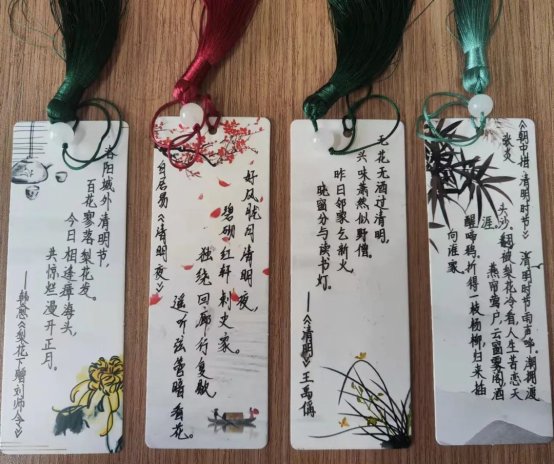 洛阳城外清明节，
百花寥落梨花发。
今日相逢瘴海头，
共惊烂漫开正月。
——韩愈《梨花下赠刘师令》
好风胧月清明夜，
碧砌红轩刺史家。
独绕回廊行复歇，
遥听弦管暗看花。
白居易《清明夜》
无花无酒过清明，
兴味萧然似野僧。
昨日邻家乞新火，
晓窗分与读书灯。
——《清明》王禹偁
《朝中措·清明时节》
张炎
清明时节雨声哗。潮拥渡
头沙。翻被梨花冷看，人生苦恋天
涯。燕帘莺户，云窗雾阁，酒
醒啼鸦。折得一枝杨柳，归来插
向谁家。